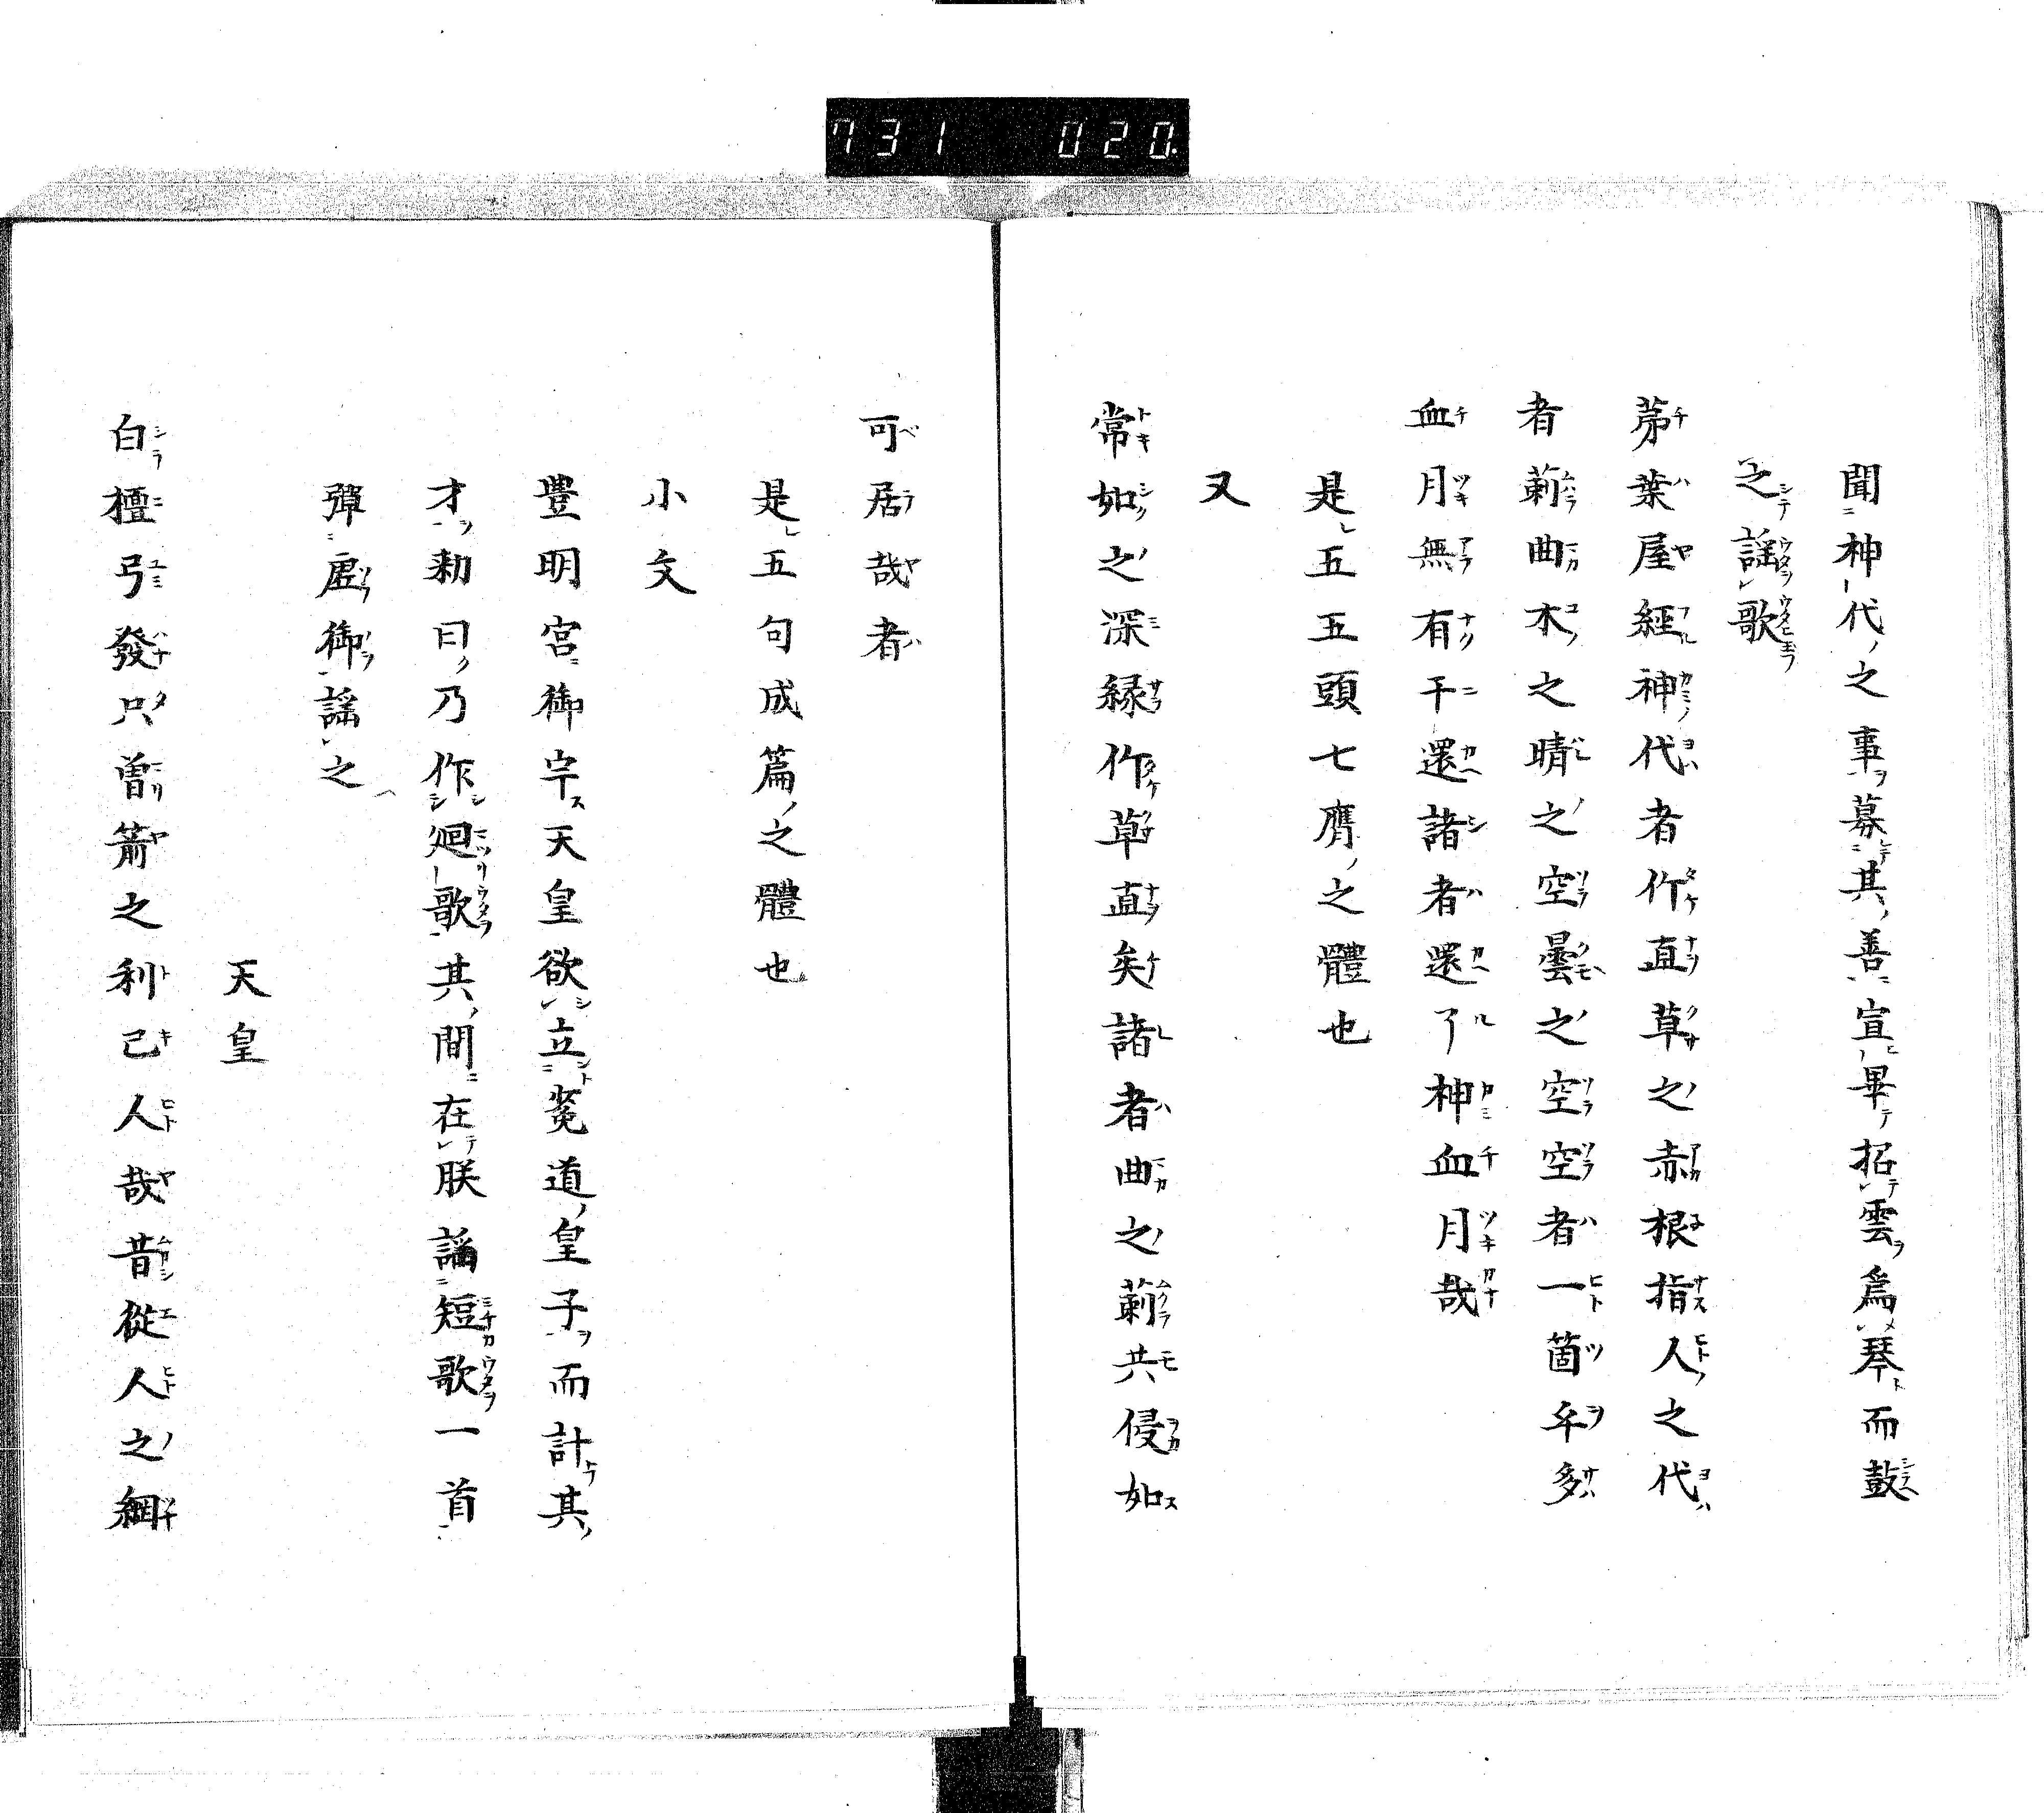 731 020
聞神代之事募其善宣畢招雲爲琴而鼓
之謡歌
茅葉屋經神代者作直草之赤根指人之代
者莿曲木之晴之空曇之空空者一箇乎多
血月無有干還諸者還了神血月哉
是五五頭七膺之體也
又
常如之深緑作草直矣諸者曲之莿共侵如
可居哉者
是五句成篇之體也
小文
豊明宮御宇天皇欲立菟道皇子而計其
才勅曰乃作廻歌其間在朕謡短歌一首
彈虛御謡之
天皇
白檀弓發只曽箭之利己人哉昔從人之綱